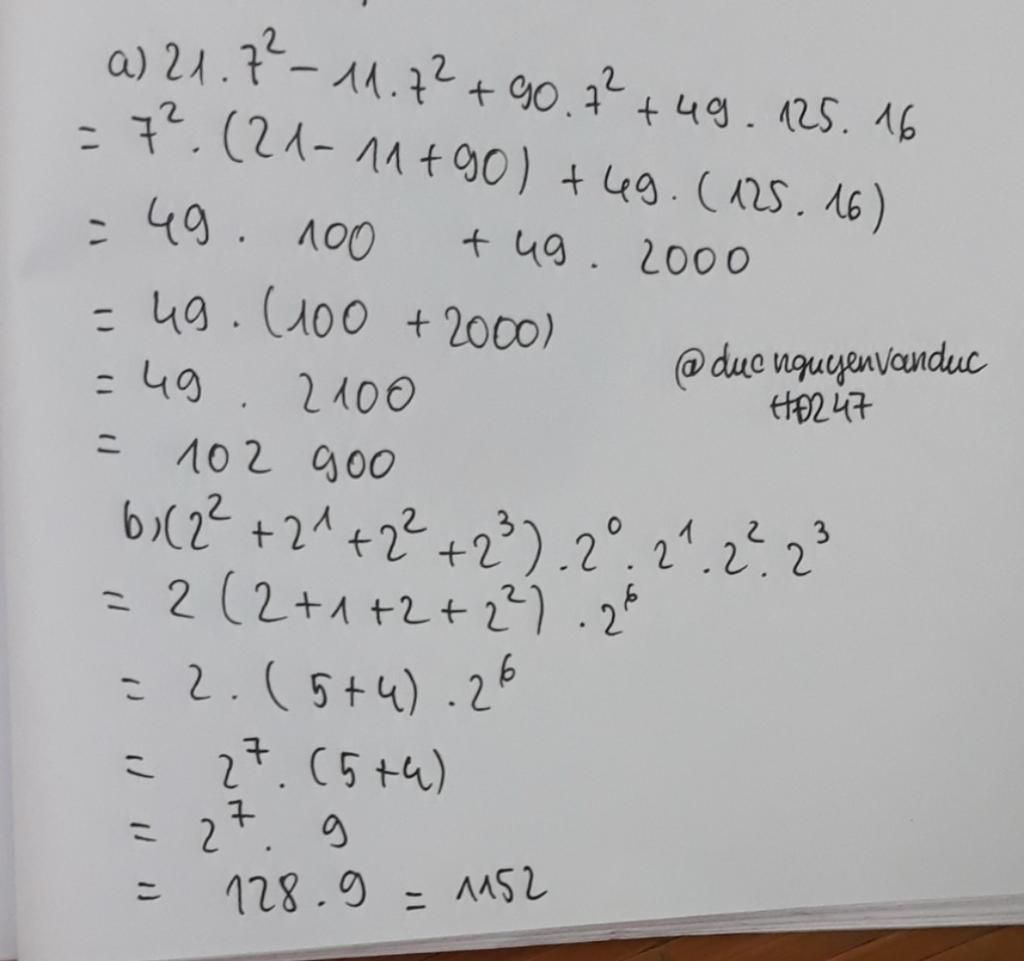 a) 21 . 7² - 11 . 7² + 90 . 7² + 49 . 125 . 16
= 7² . (21 - 11 + 90) + 49 . (125 . 16)
= 49 . 100 + 49 . 2000
= 49 . (100 + 2000)
@ducnguyenvanduc
= 49 . 2100
HĐ247
= 102 900
b) (2² + 2¹ + 2² + 2³) . 2⁰ . 2¹ . 2² . 2³
= 2 (2 + 1 + 2 + 2²) . 2⁶
= 2 . (5 + 4) . 2⁶
= 2⁷ . (5 + 4)
= 2⁷ . 9
= 128 . 9 = 1152